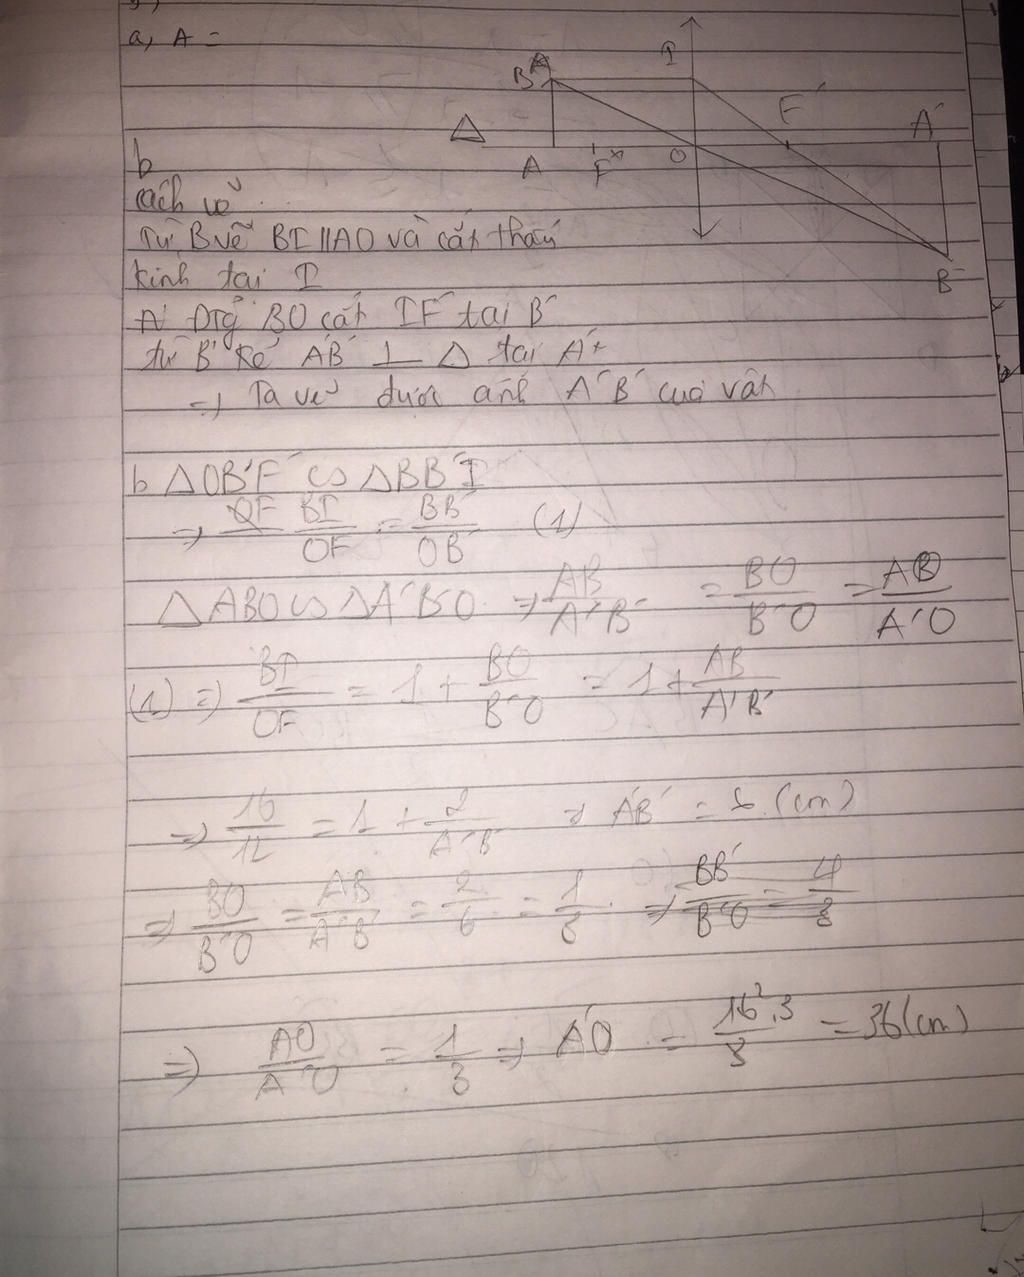 a, A =
B I F' A'
Δ A F O
B'
b
cách vẽ
Từ B vẽ BI // AO và cắt thấu
kính tại I
Đtg BO cắt IF' tại B'
từ B' kẻ A'B' ⊥ Δ tại A'
=> Ta vẽ được ảnh A'B' của vật
b ΔOB'F' ∽ ΔBB'I
=> BI/OF = BB'/OB' (1)
ΔABO ∽ ΔA'B'O => AB/A'B' = BO/B'O = AO/A'O
(1) => BI/OF = 1 + BO/B'O = 1 + AB/A'B'
=> 16/12 = 1 + 2/A'B' => A'B' = 6 (cm)
=> BO/B'O = AB/A'B' = 2/6 = 1/3 => BB'/B'O = 4/3
=> AO/A'O = 1/3 => A'O = = 36 (cm)